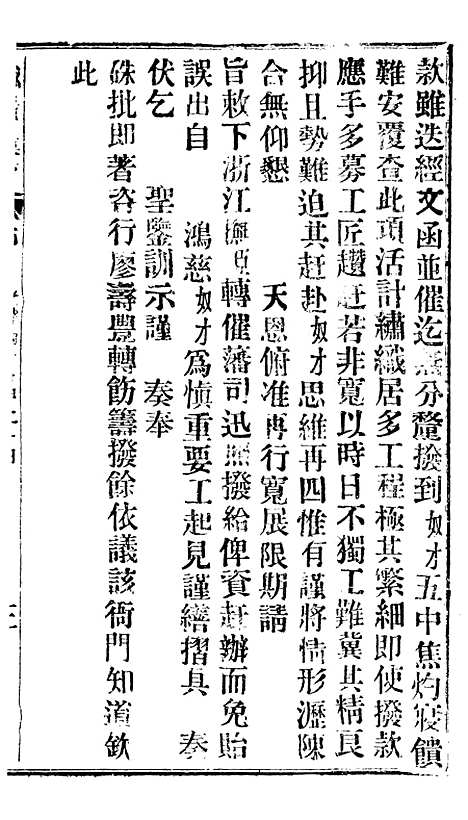 款雖迭經文函並催迄無分釐撥到奴才五中焦灼寢饋
難安覆查此項活計繡織居多工程極其繁細即使撥款
應手多募工匠趲赶若非寬以時日不獨工難冀其精良
抑且勢難迫其赶赴奴才思維再四惟有謹將情形瀝陳
合無仰懇 天恩俯准再行寬展限期請
旨敕下浙江撫臣轉催藩司迅照撥給俾資赶辦而免貽
誤出自 鴻慈奴才為慎重要工起見謹繕摺具 奏
伏乞 聖鑒訓示謹 奏奉
硃批即著咨行廖壽豐轉飭籌撥餘依議該衙門知道欽
此